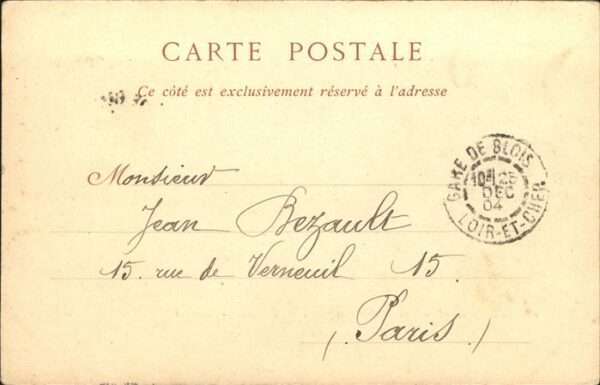 CARTE POSTALE
Ce côté est exclusivement réservé à l'adresse
GARE DE BLOIS
25
DEC
04
LOIR-ET-CHER
Monsieur
Jean Bezault
15. rue de Verneuil 15.
(Paris.)